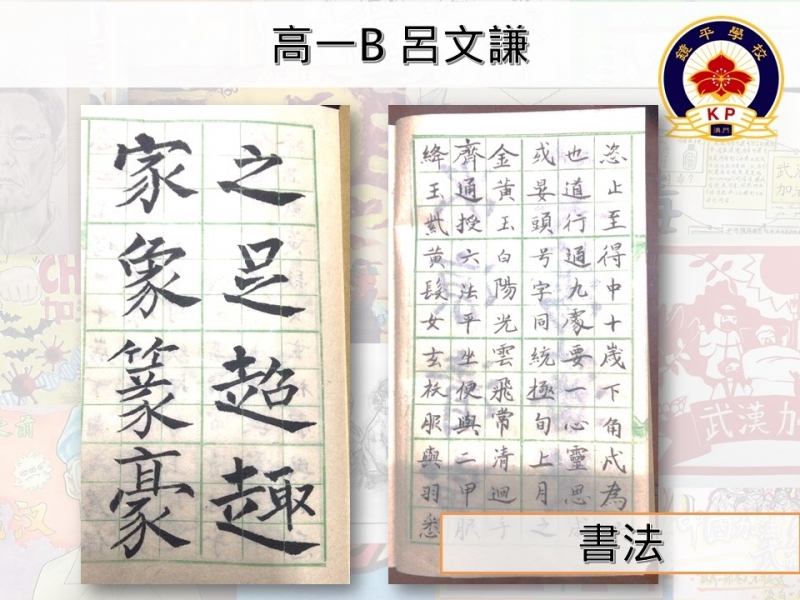 高一B 呂文謙
鏡平學校
KP
澳門
之足超趣
家象篆豪
止至得中十歲下角為
也道行通九處要一心靈思
或晏頭号字同統極旬上月之
金黃玉白陽光雲飛常清迴子
齊通授六法平坐便與二甲服
絳王黃髮女玄服與羽悉
書法
武漢加